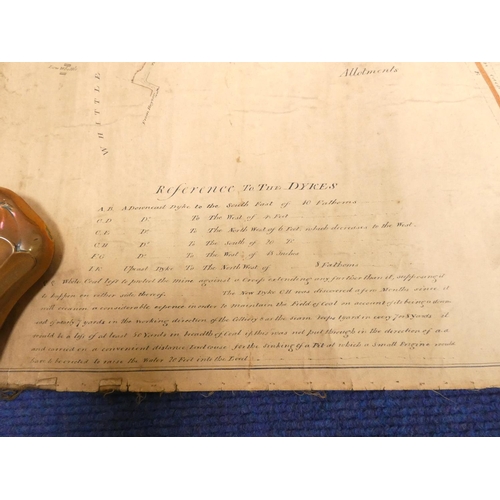 Allotments
WHITTLE
Reference To The DYKES
A.B. A Downcast Dyke to the South East of 40 Fathoms
C.D. Do. To The West of Feet
Do. To The North West of 6 Feet, which decreases to the West.
C.H. Do. To The South of
F.G. Do. To The West of 18 Inches
I.K. Upcast Dyke To The North West of 3 Fathoms
White Coal left to protect the mine against a Creep extending any further than it, supposing it
to happen on either side thereof. The New Dyke G.H was discovered a few Months since it
will occasion a considerable expense in order to Maintain the Field of Coal on account of its being a down
cast of nearly 7 yards in the working direction of the Colliery & as the main dips 1 yard in every it
would be a loss of at least 80 Yards in breadth of Coal if this was not put through in the direction of
and carried on a convenient distance Endways for the Sinking of a Pit at which a Small Engine would
have to be erected to raise the Water 20 Feet into the Level